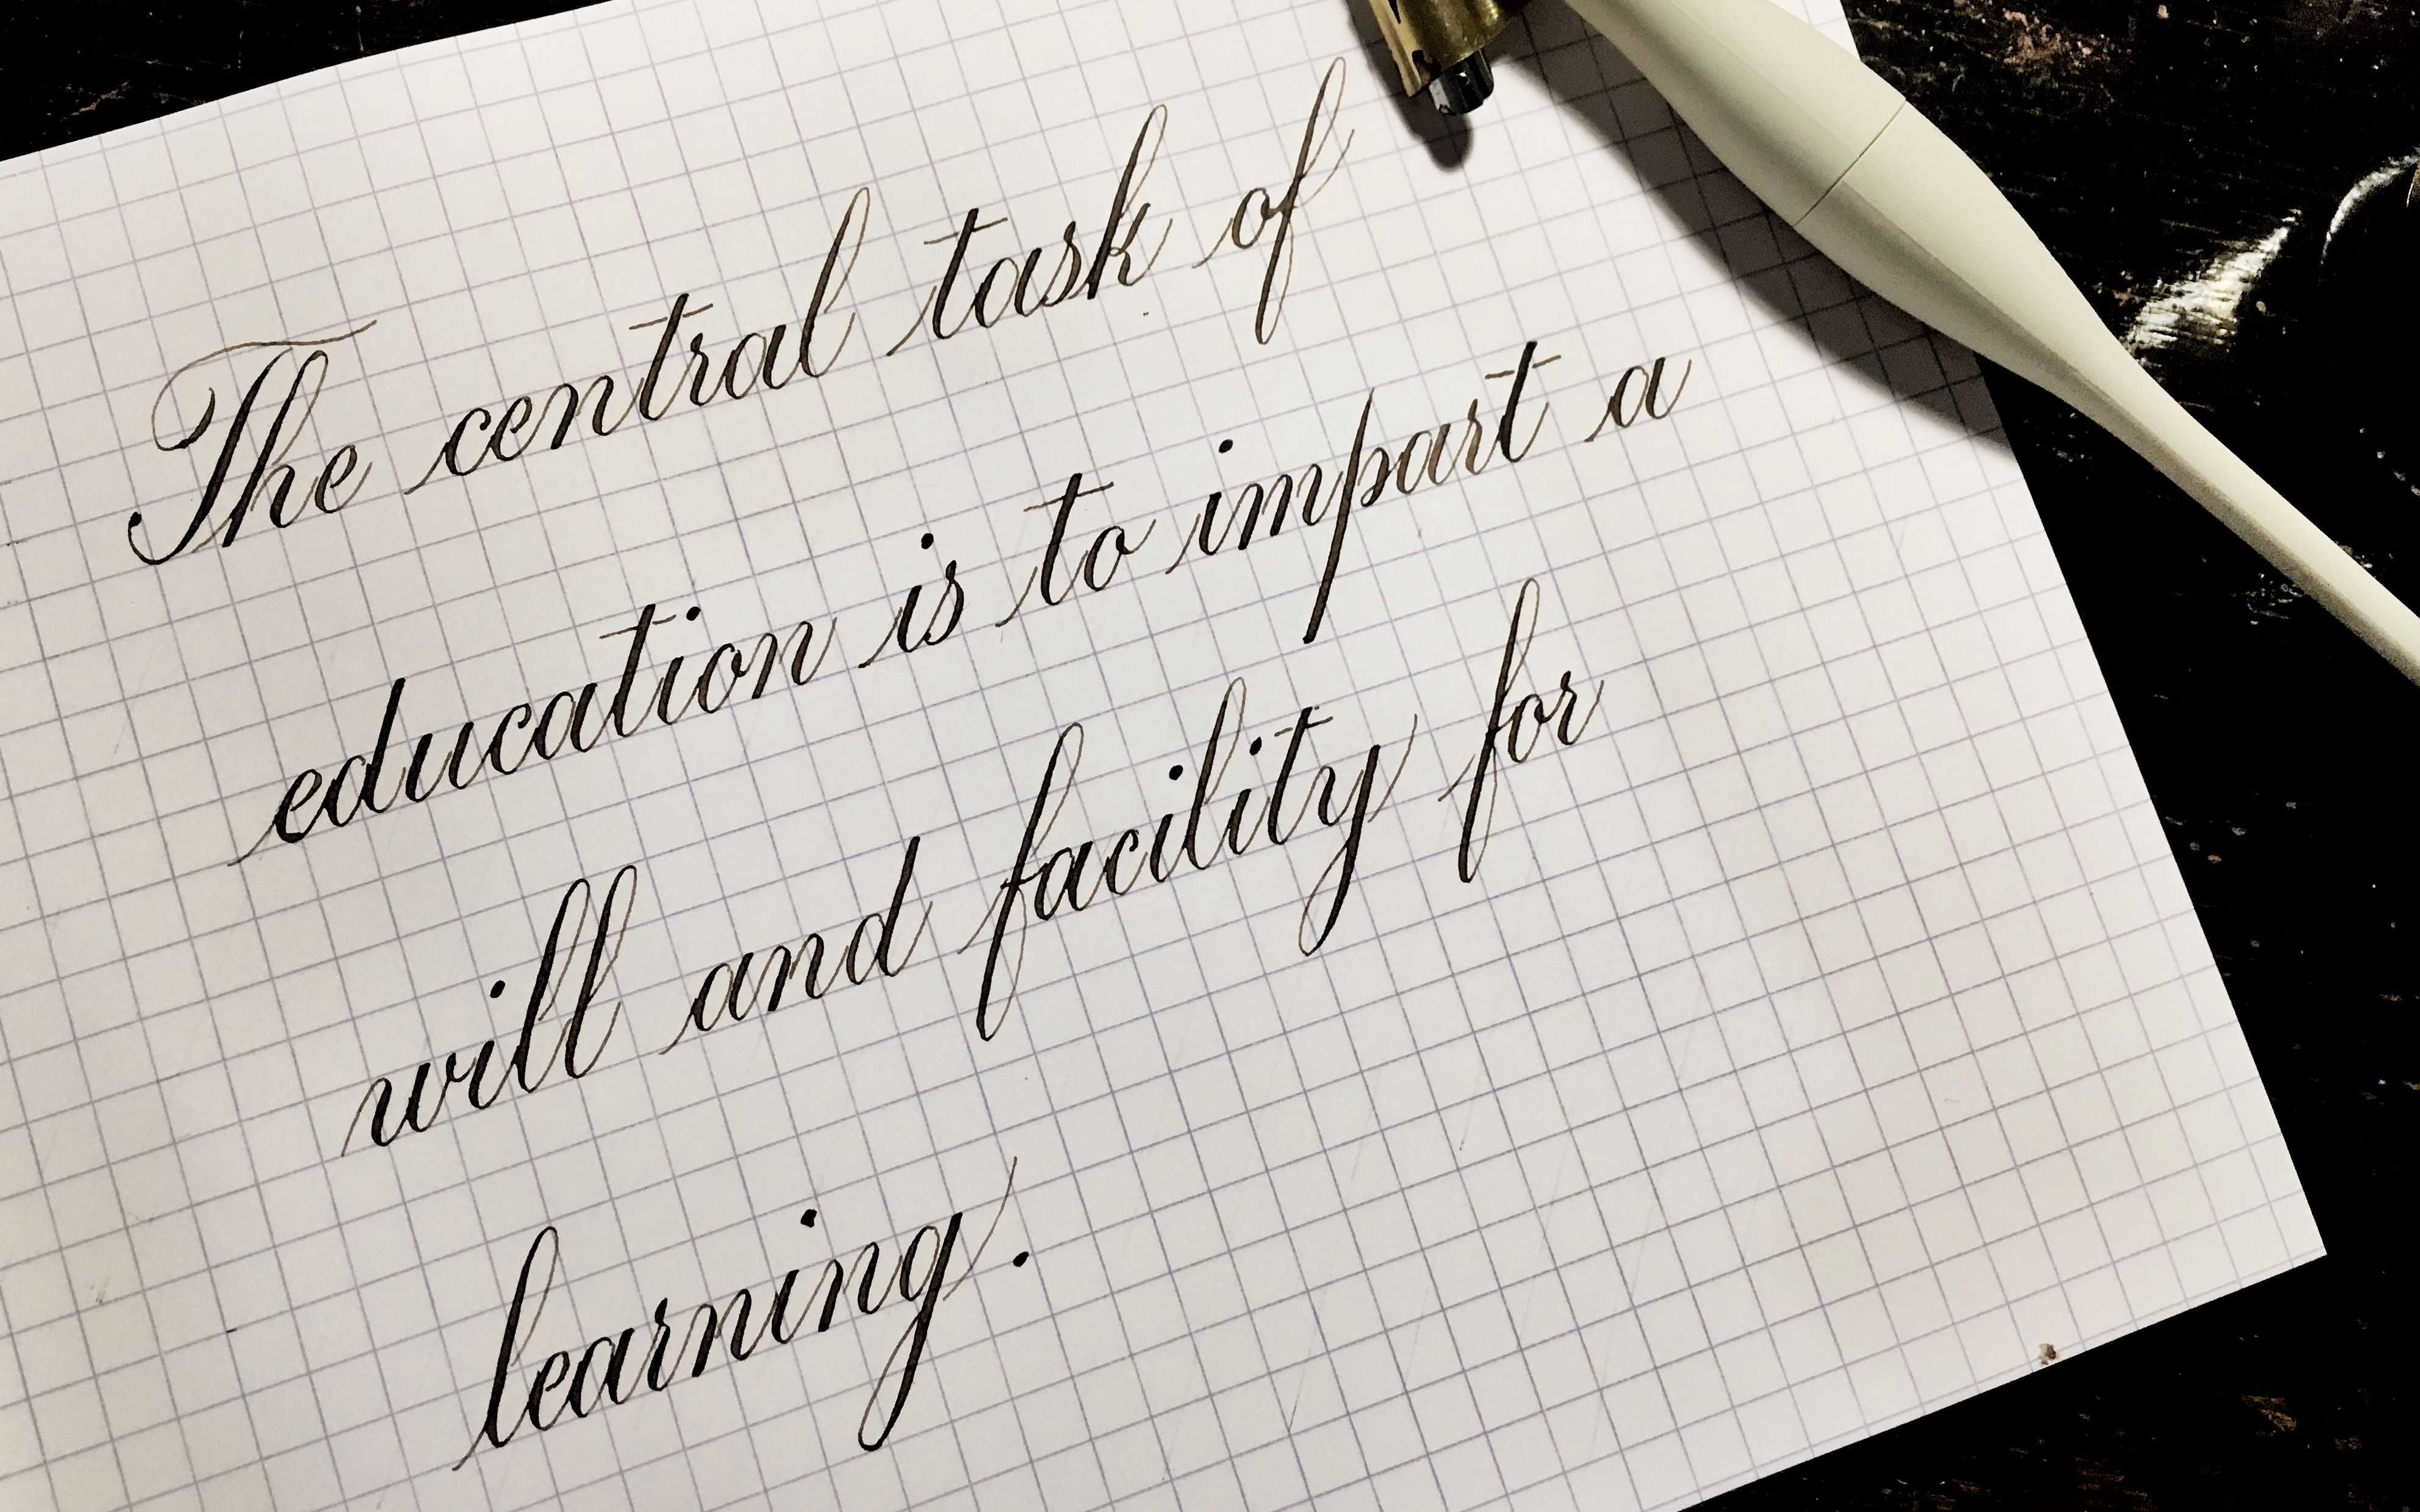 The central task of
education is to impart a
will and facility for
learning.